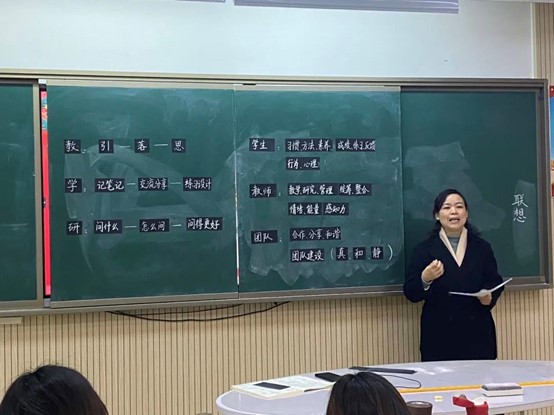 教：引—落—思
学：记笔记—交流分享—练习设计
研：问什么—怎么问—问得更好
学生：习惯、方法、素养 成绩、作业反馈
行为、心理
教师：教学研究、管理 统筹、整合
情绪、能量 感知力
团队：合作、分享、和谐
团队建设（真 和 静）
联想